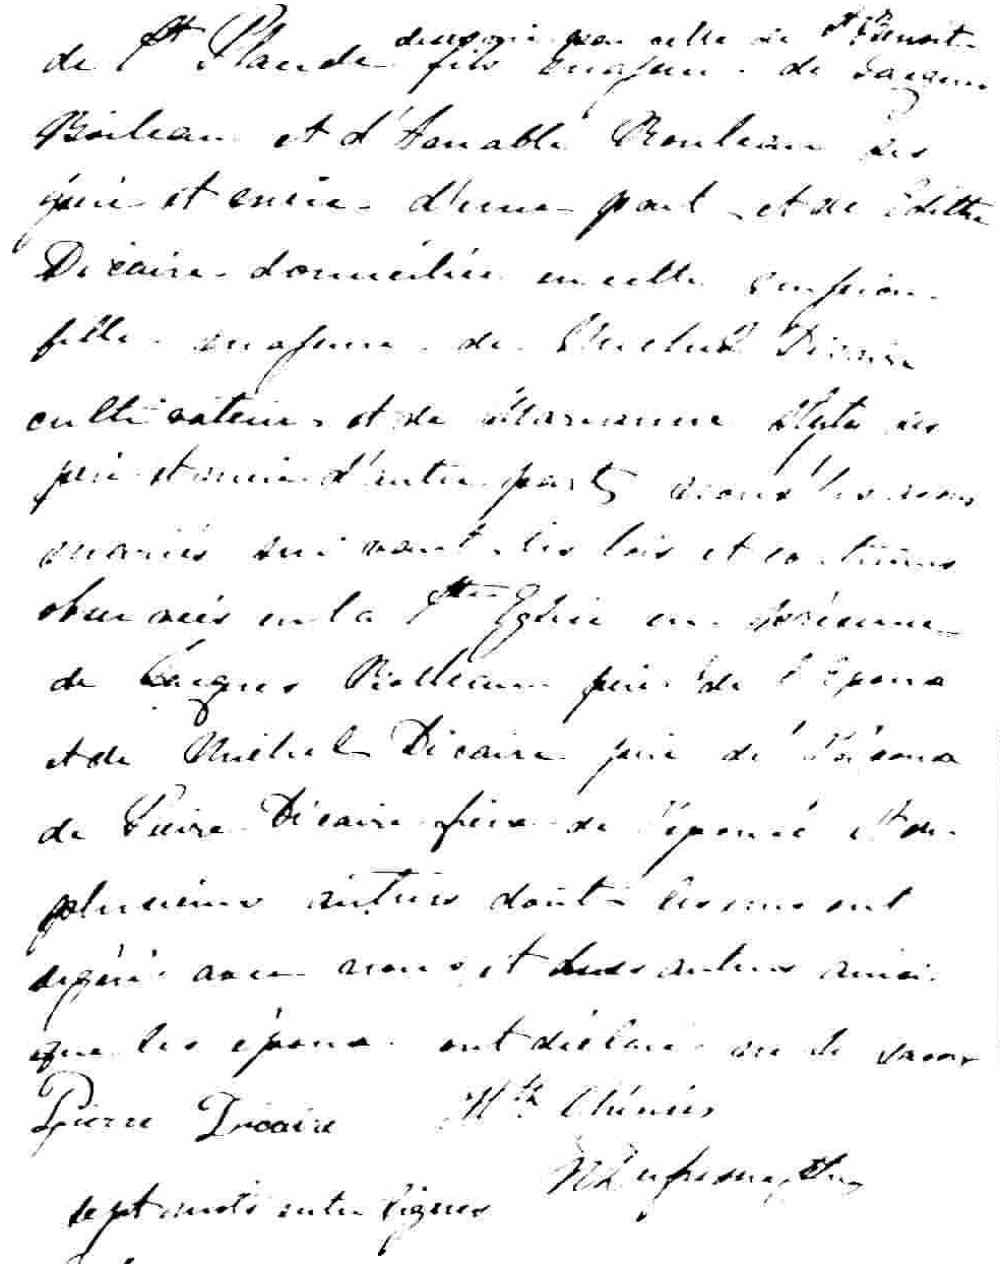 desservie par celle de St Benoit
de St Placide fils majeur de Jacques
Boileau et d'Amable Rouleau ses
père et mère d'une part et de Edithe
Dicaire domiciliée en cette mission
fille majeure de Michel Dicaire
cultivateur et de Marianne ses
père et mère d'autre part, avons les avons
mariés suivant les lois et coutumes
observées en la Ste Eglise en présence
de Jacques Boileau père de l'Epoux
et de Michel Dicaire père de l'épouse
de Pierre Dicaire frère de l'épouse et de
plusieurs autres dont les uns ont
signé avec nous et les autres ainsi
que les époux ont déclaré ne le savoir
Pierre Dicaire
N Dufresne Ptre
sept mots entre lignes